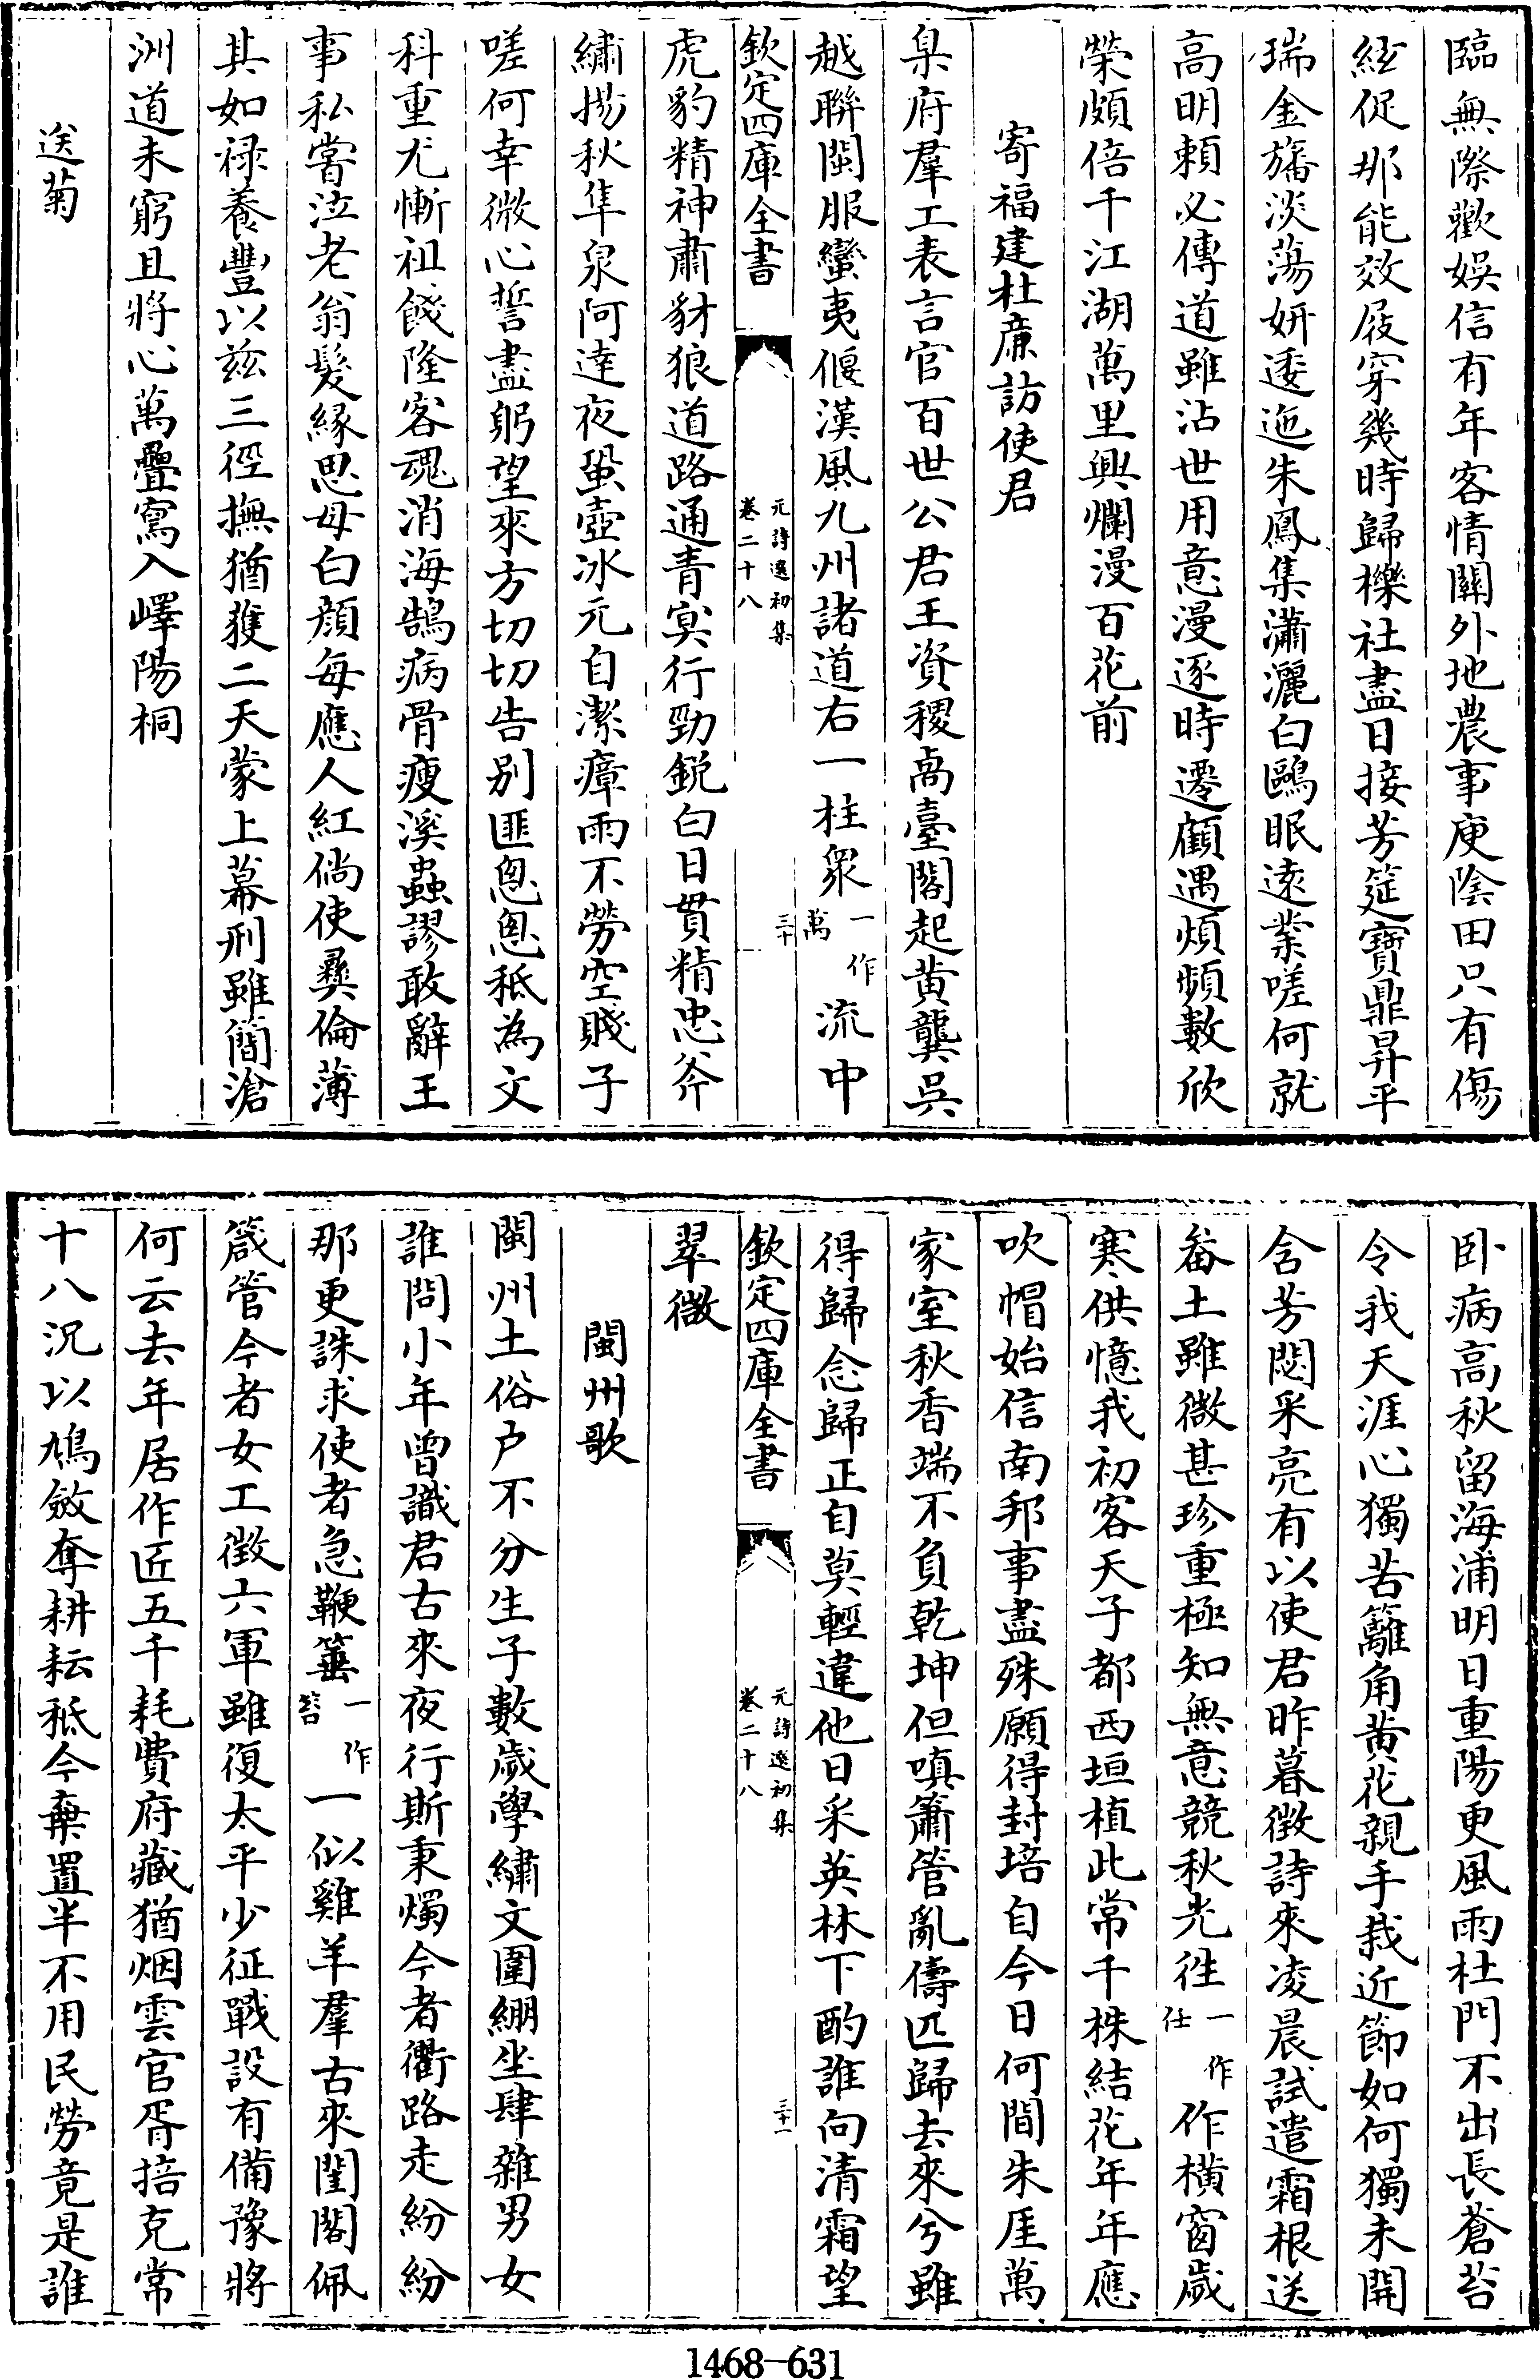 臨無際歡娛信有年客情關外地農事庾陰田只有傷
絃促那能效屐穿幾時歸櫟社盡日接芳筵寶鼎昇平
瑞金旛淡蕩妍逶迤朱鳳集瀟灑白鷗眠遠業嗟何就
高明賴必傳道雖沾世用意漫逐時遷顧遇煩頻數欣
榮頗倍千江湖萬里興爛漫百花前
寄福建杜廉訪使君
臬府羣工表言官百世公君王資稷卨臺閣起黄龔吳
越聯閩服蠻夷偃漢風九州諸道右一柱衆一作萬流中
欽定四庫全書
元詩選初集
卷二十八
三十
虎豹精神肅豺狼道路通青冥行勁鋭白日貫精忠斧
繡揚秋隼泉阿達夜蛩壺冰元自潔瘴雨不勞空賤子
嗟何幸微心誓盡躬望來方切切告别匪悤悤秪為文
科重尤慚祖餞隆客魂消海鵠病骨瘦溪蟲謬敢辭王
事私嘗泣老翁髮緣思母白顔每應人紅倘使彛倫薄
其如禄養豐以兹三徑撫猶獲二天蒙上幕刑雖簡滄
洲道未窮且將心萬疊寫入嶧陽桐
送菊
卧病高秋留海浦明日重陽更風雨杜門不出長蒼苔
令我天涯心獨苦籬角黄花親手栽近節如何獨未開
含芳悶采亮有以使君昨暮徵詩來凌晨試遣霜根送
畚土雖微甚珍重極知無意競秋光徃一作仕作横窗歲
寒供憶我初客天子都西垣植此常千株結花年年應
吹帽始信南邦事盡殊願得封培自今日何間朱厓萬
家室秋香端不負乾坤但嗔簫管亂儔匹歸去來兮雖
得歸念歸正自莫輕違他日采英林下酌誰向清霜望
欽定四庫全書
元詩選初集
卷二十八
三十一
翠微
閩州歌
閩州土俗户不分生子數歲學繡文圍繃坐肆雜男女
誰問小年曾識君古來夜行斯秉燭今者衢路走紛紛
那更誅求使者急鞭箠一作笞一似雞羊羣古來閨閤佩
箴管今者女工徴六軍雖復太平少征戰設有備豫將
何云去年居作匠五千耗費府藏猶烟雲官胥掊克常
十八況以鳩斂奪耕耘秪今棄置半不用民勞竟是誰
1468-631